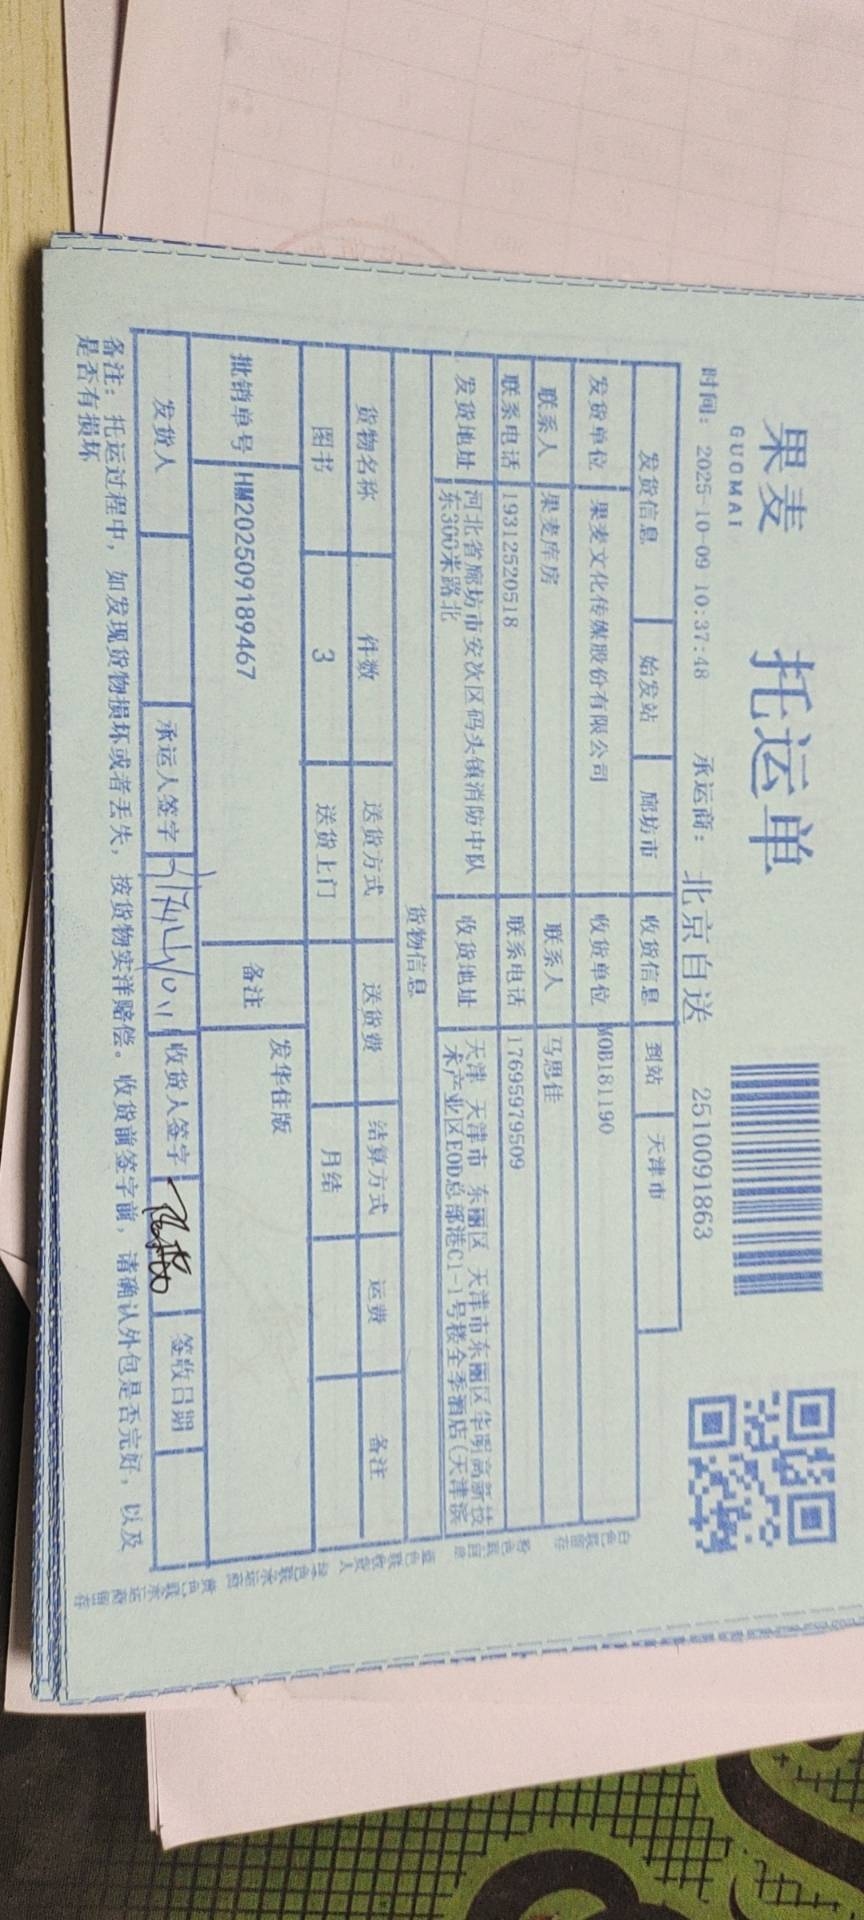 果麦 托运单
GUOMAI
时间： 2025-10-09 10:37:48 承运商： 北京自送 2510091863
发货信息 始发站 廊坊市 收货信息 到站 天津市
发货单位 果麦文化传媒股份有限公司 收货单位 MOB181190
联系人 果麦库房 联系人 马恩佳
联系电话 19312520518 联系电话 17695979509
发货地址 河北省廊坊市安次区码头镇消防中队 收货地址 天津 天津市 东丽区 天津市东丽区华明高新技
东300米路北 术产业区EOD总部港C1-1号楼全季酒店(天津滨
货物信息
货物名称 件数 送货方式 送货费 结算方式 运费 备注
图书 3 送货上门 月结
批销单号 HM202509189467 备注 发华住版
发货人 承运人签字 收货人签字 签收日期
备注： 托运过程中，如发现货物损坏或者丢失，按货物实洋赔偿。收货前签字前，请确认外包是否完好，以及
是否有损坏
白色联留存 粉色联回息 蓝色联收货人 绿色联承运商 黄色联承运商留存